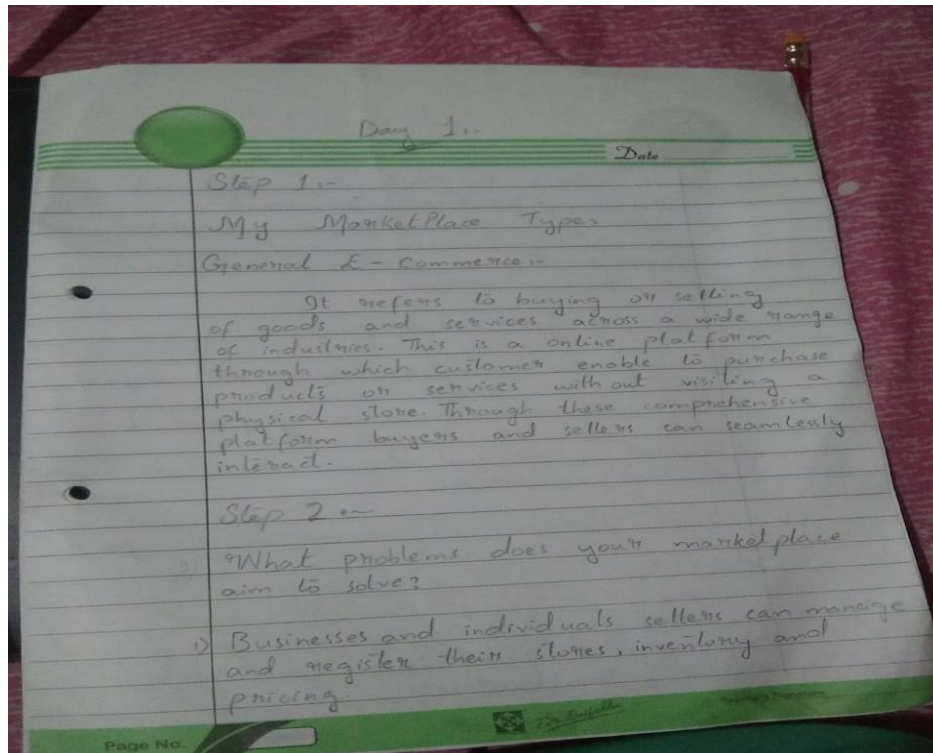 Day 1:-
Date
Step 1:-
My MarketPlace Type:
General E-Commerce:-
It refers to buying or selling
of goods and services across a wide range
of industries. This is a online platform
through which customer enable to purchase
products or services with out visiting a
physical store. Through these comprehensive
platform buyers and sellers can seamlessly
interact.
Step 2:-
"What problems does your marketplace
aim to solve?
1) Businesses and individuals sellers can manage
and register their stores, inventory and
pricing.
Page No.